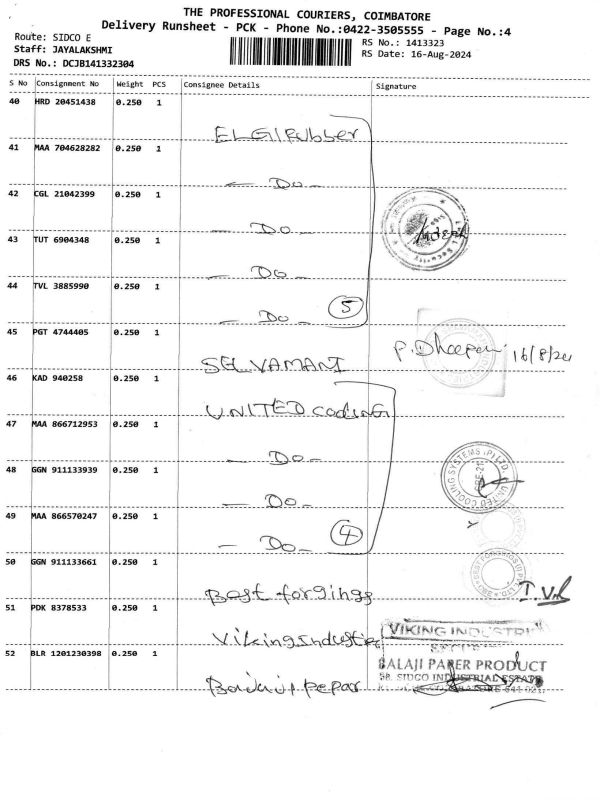 THE PROFESSIONAL COURIERS, COIMBATORE
Delivery Runsheet - PCK - Phone No.:0422-3505555 - Page No.:4
Route: SIDCO E
Staff: JAYALAKSHMI
DRS No.: DCJB141332304
RS No.: 1413323
RS Date: 16-Aug-2024
S No Consignment No Weight PCS Consignee Details Signature
40 HRD 20451438 0.250 1
ELGI Rubber
41 MAA 704628282 0.250 1
— Do —
42 CGL 21042399 0.250 1
— Do —
43 TUT 6904348 0.250 1
— Do —
44 TVL 3885990 0.250 1
— Do — 5
45 PGT 4744405 0.250 1
SELVAMANI P. Dheepan 16/8/24
46 KAD 940258 0.250 1
UNITED Cooling
47 MAA 866712953 0.250 1
— Do —
48 GGN 911133939 0.250 1
— Do —
UNITED COOLING SYSTEMS (P) LTD
49 MAA 866570247 0.250 1
— Do — 4
50 GGN 911133661 0.250 1
Best forgings
51 PDK 8378533 0.250 1
VIKING INDUSTRI
Viking Industies
52 BLR 1201230398 0.250 1
BALAJI PAPER PRODUCT
SIDCO INDUSTRIAL ESTATE
Balaji pepar